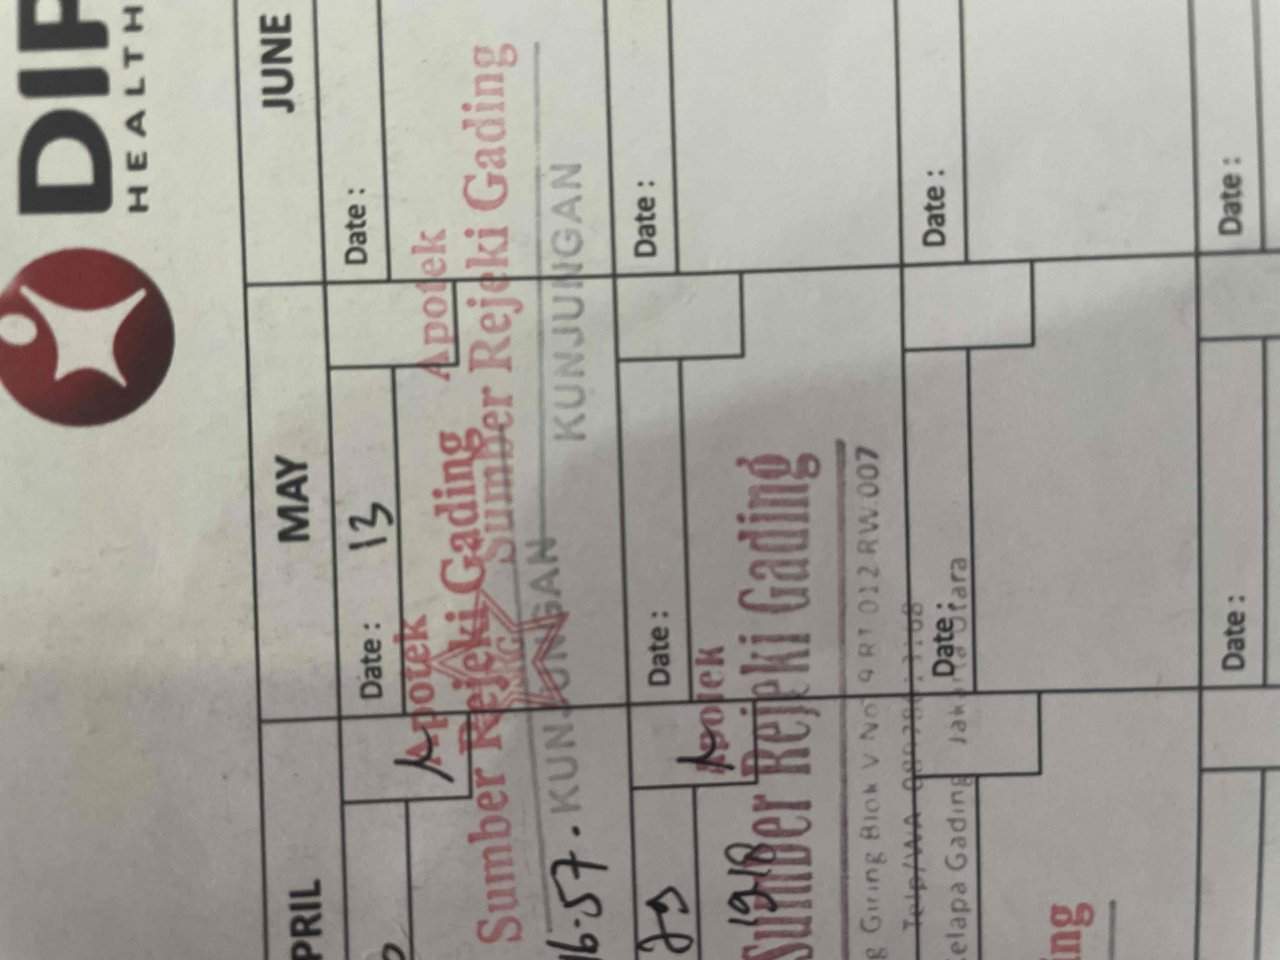 DIP
HEALTH
PRIL
MAY
JUNE
Date : 13
Date :
Apotek
Sumber Rejeki Gading
KUNJUNGAN
Apotek
Sumber Rejeki Gading
KUNJUNGAN
16.57.
29
Date :
Date :
Apotek
Sumber Rejeki Gading
1918
g Giring Blok V No 9 RT 012 RW.007
Telp/WA
elapa Gading Jakarta Utara
Date :
Date :
ing
Date :
Date :